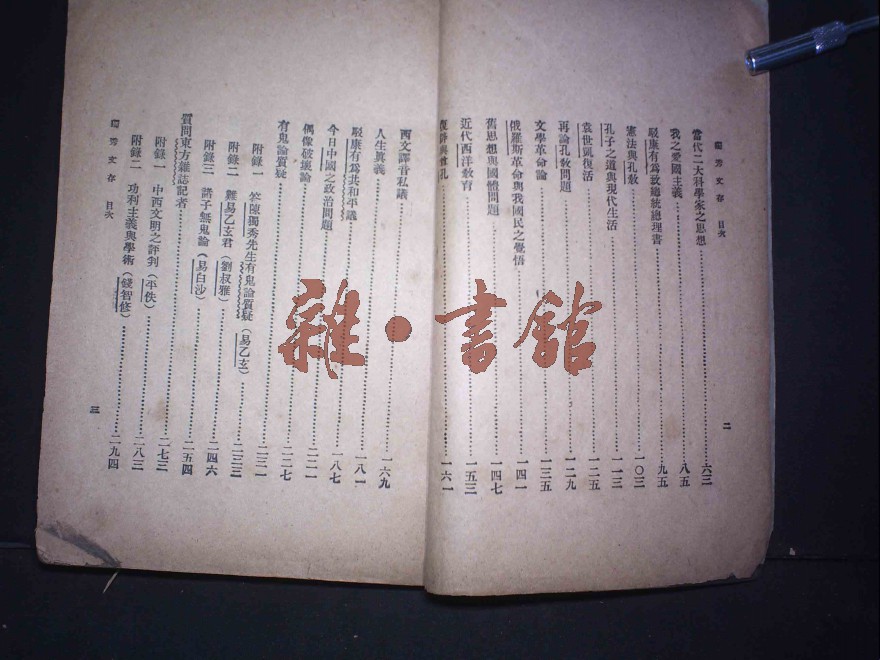 獨秀文存 目次
二
當代二大科學家之思想……六三
我之愛國主義……八五
駁康有爲致總統總理書……九五
憲法與孔敎……一〇三
孔子之道與現代生活……一一三
袁世凱復活……一二五
再論孔敎問題……一二九
文學革命論……一三五
俄羅斯革命與我國民之覺悟……一四一
舊思想與國體問題……一四七
近代西洋敎育……一五三
復辟與尊孔……一六一
西文譯音私議……一六九
人生眞義
駁康有爲共和平議……一八一
今日中國之政治問題……一八七
偶像破壞論……二二一
有鬼論質疑……二二七
附錄一 答陳獨秀先生有鬼論質疑(易乙玄)……二三一
附錄二 難易乙玄君(劉叔雅)……二三三
附錄三 諸子無鬼論(易白沙)……二四六
質問東方雜誌記者……二五四
附錄一 中西文明之評判(平佚)……二七三
附錄二 功利主義與學術(錢智修)……二九四
獨秀文存 目次
三
雜·書館